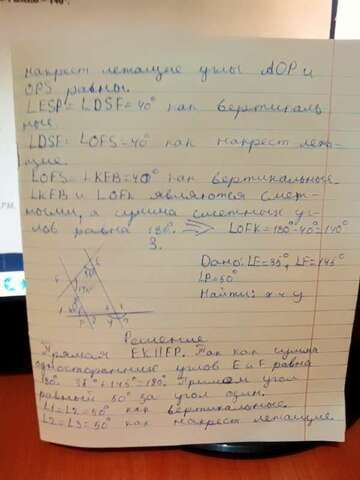 накрест лежащие углы AOP и
OPS равны.
∠ESP = ∠DSF = 40° как вертикаль
ные.
∠DSF = ∠OFS = 40° как накрест лежа-
щие.
∠OFS = ∠KFB = 40° как вертикальные.
∠KFB и ∠OFK являются смеж-
ными, а сумма смежных уг-
лов равна 180°. => ∠OFK = 180° - 40° = 140°
3.
Дано: ∠E = 35°, ∠F = 145°
∠P = 50°
Найти: x и y
Решение
Прямая EK || FP. Так как сумма
односторонних углов E и F равна
180°. 35° + 145° = 180°. Примем угол
равный 50° за угол один.
∠1 = ∠2 = 50° как вертикальные.
∠2 = ∠3 = 50° как накрест лежащие.